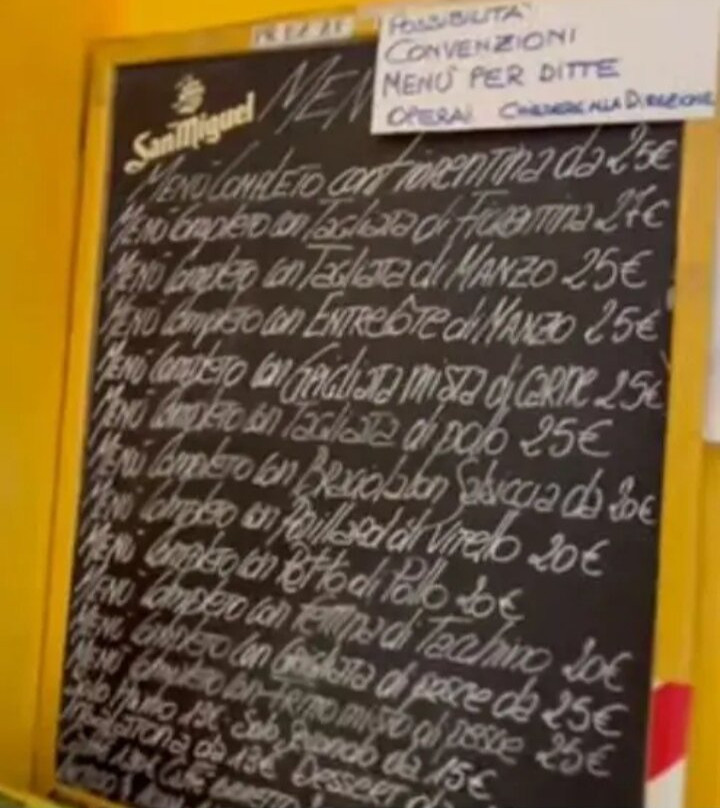 POSSIBILITA'
CONVENZIONI
MENÙ PER DITTE
OPERAI CHIEDERE ALLA DIREZIONE
San Miguel
MEN
MENÙ COMPLETO con Fiorentina da 25€
MENÙ Completo con Tagliata di Fiorentina 27€
MENÙ Completo con Tagliata di MANZO 25€
MENÙ Completo con ENTRECÔTE di MANZO 25€
MENÙ Completo con Grigliata mista di CARNE 25€
MENÙ Completo con Tagliata di pollo 25€
MENÙ Completo con Braciola con Salsiccia da 20€
MENÙ Completo con Paillard di Vitello 20€
MENÙ Completo con Petto di Pollo 20€
MENÙ Completo con Fettina di Tacchino 20€
MENÙ Completo con Grigliata di pesce da 25€
MENÙ Completo con Fritto misto di pesce 25€
Solo Primo Solo Secondo da 15€
da 13€ Dessert